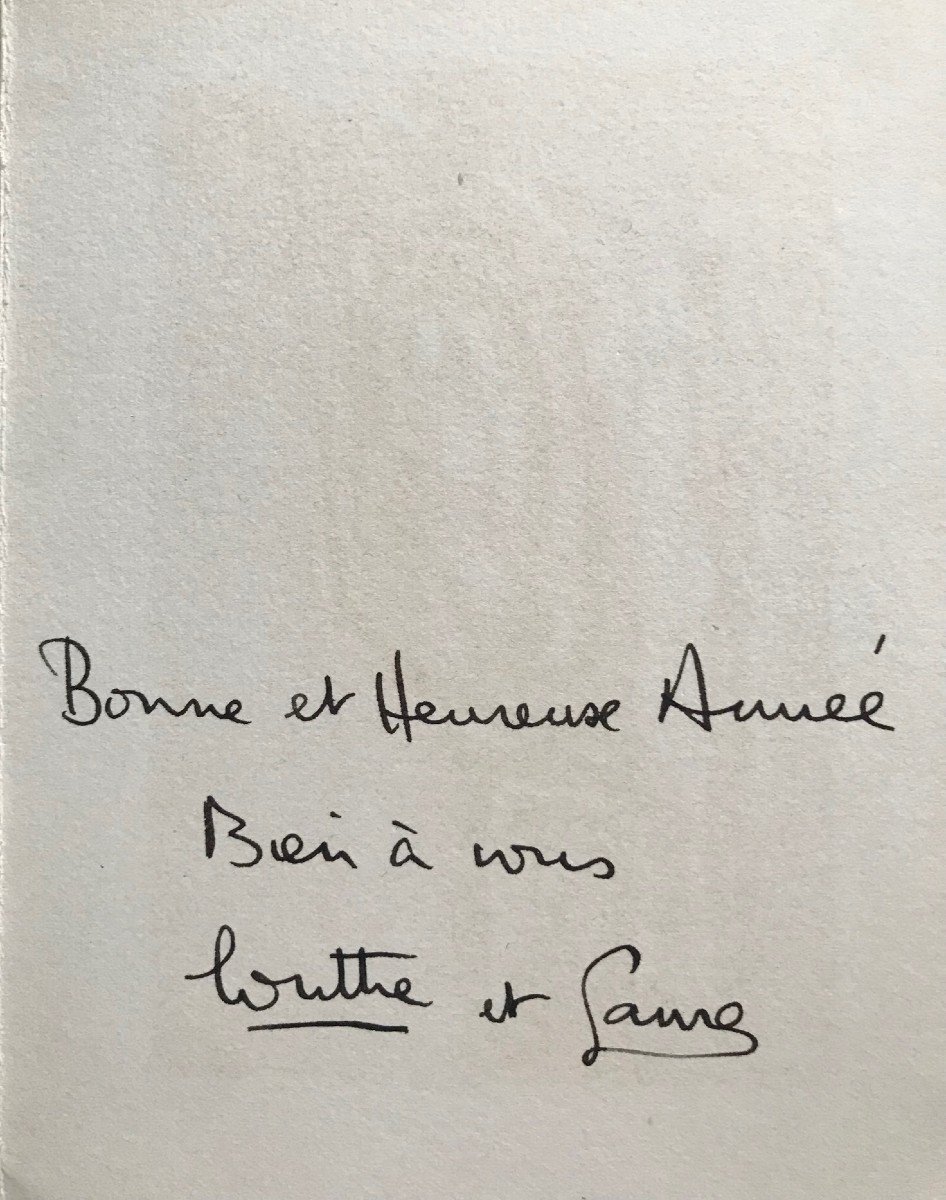 Bonne et Heureuse Année
Bien à vous
Loutthe et Laure